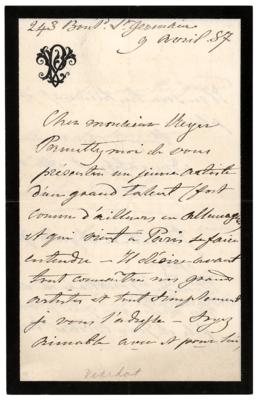 243 Boul.d St Germain
9 avril 87
Cher monsieur Meyer
Permettez moi de vous
présenter un jeune artiste
d'un grand talent (fort
connu d'ailleurs en allemagne)
et qui vient à Paris se faire
entendre — Il désire avant
tout connaître nos grands
artistes et tout simplement
je vous l'adresse — Soyez
aimable avec et pour lui,
Viardot